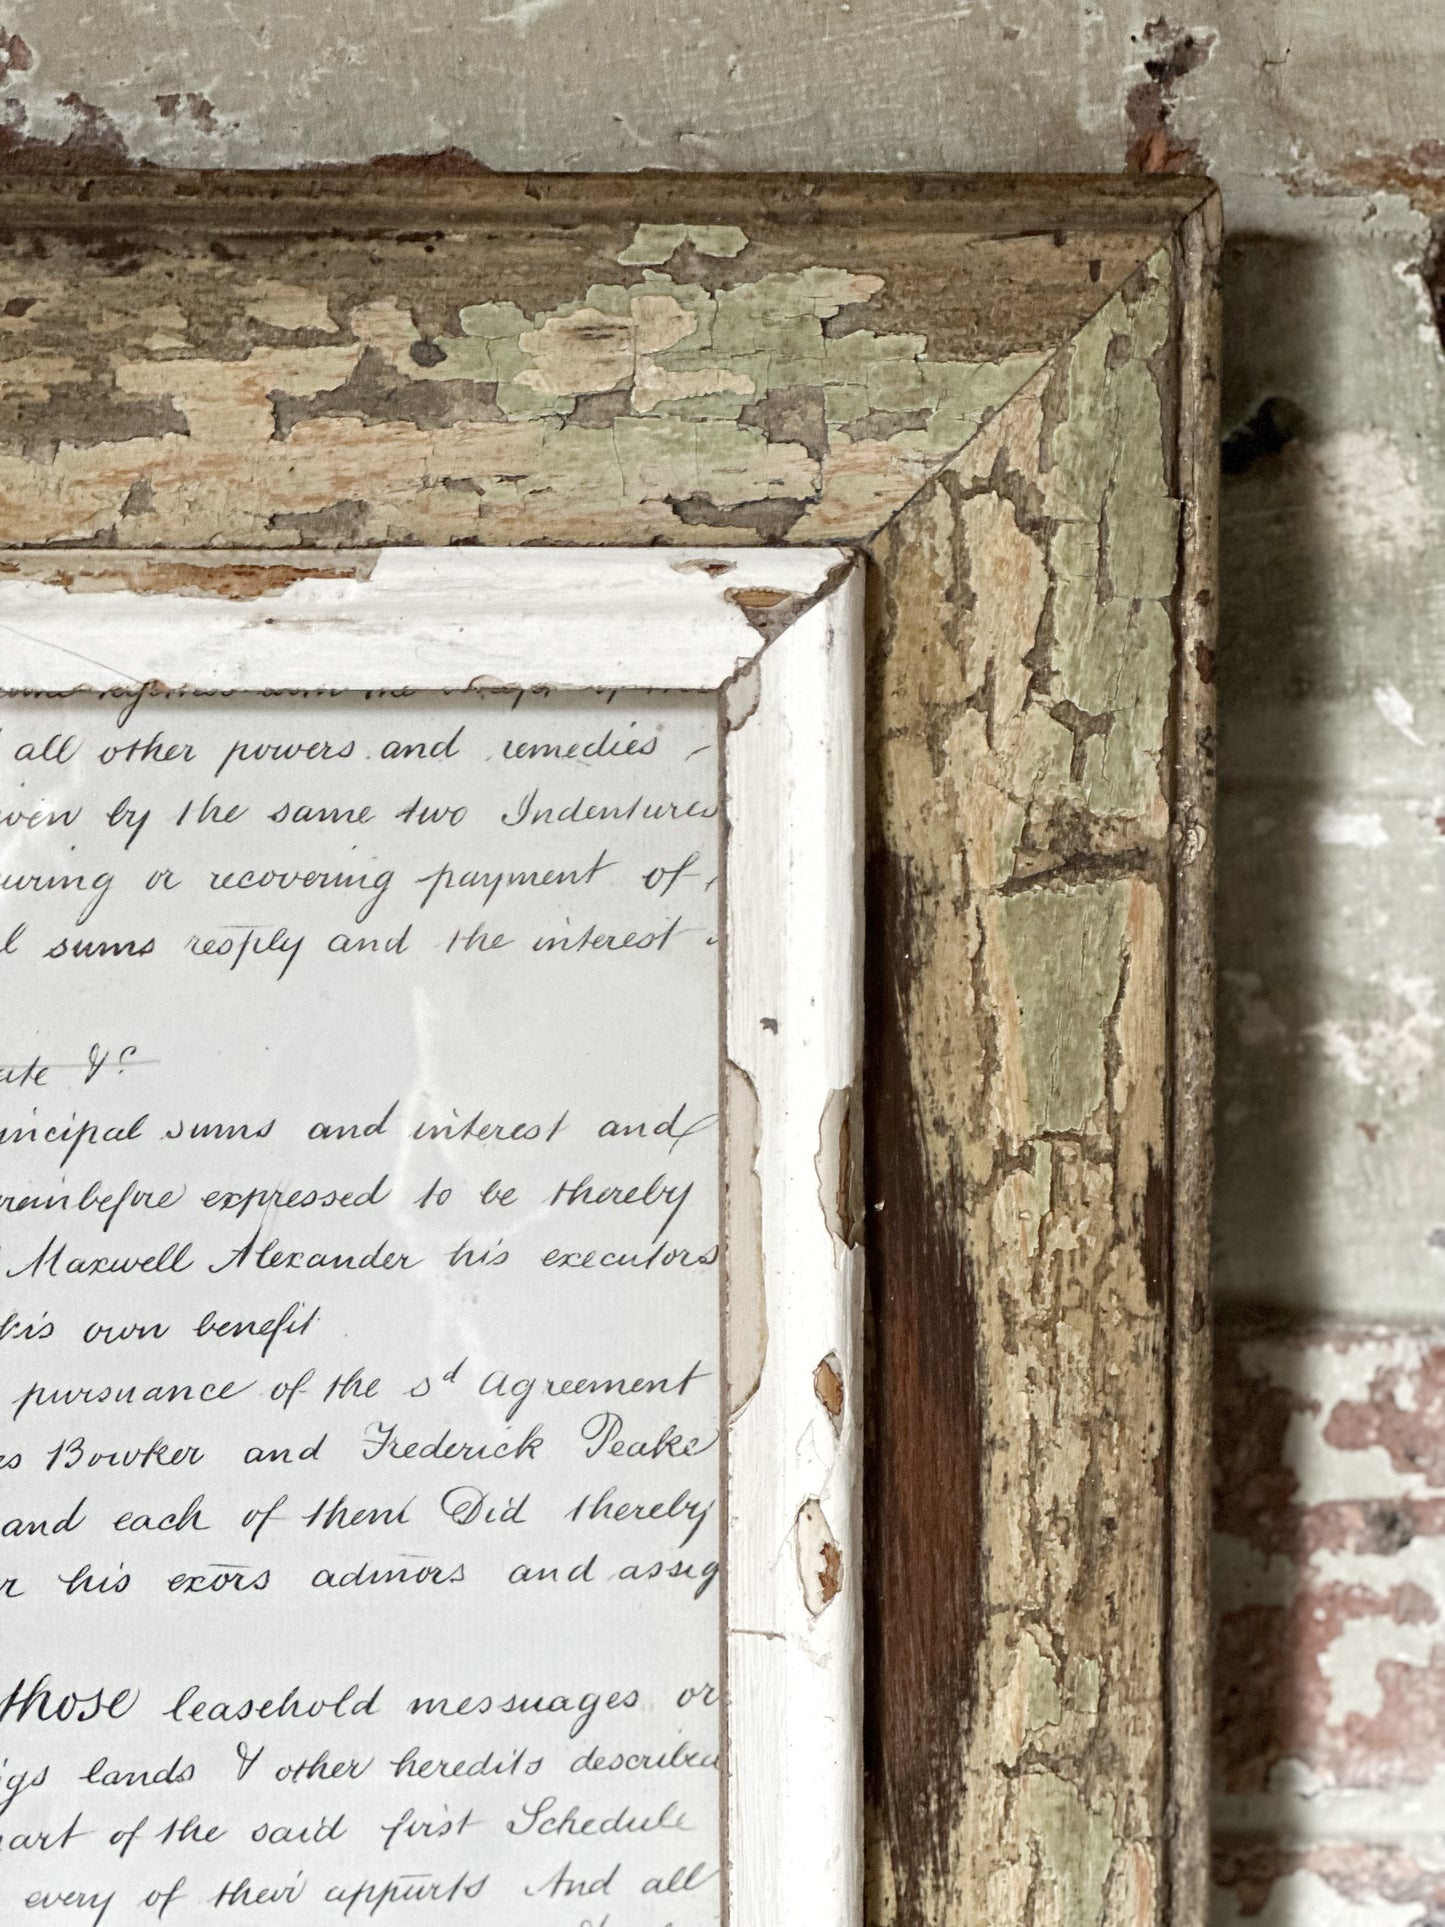 all other powers and remedies
by the same two Indentures
or recovering payment of
sums resply and the interest
&c
sums and interest and
expressed to be thereby
Maxwell Alexander his executors
own benefit
pursuance of the sd Agreement
Bowker and Frederick Peake
and each of them Did thereby
his exors admors and assig
those leasehold messuages or
lands & other heredits described
of the said first Schedule
every of their appurts And all